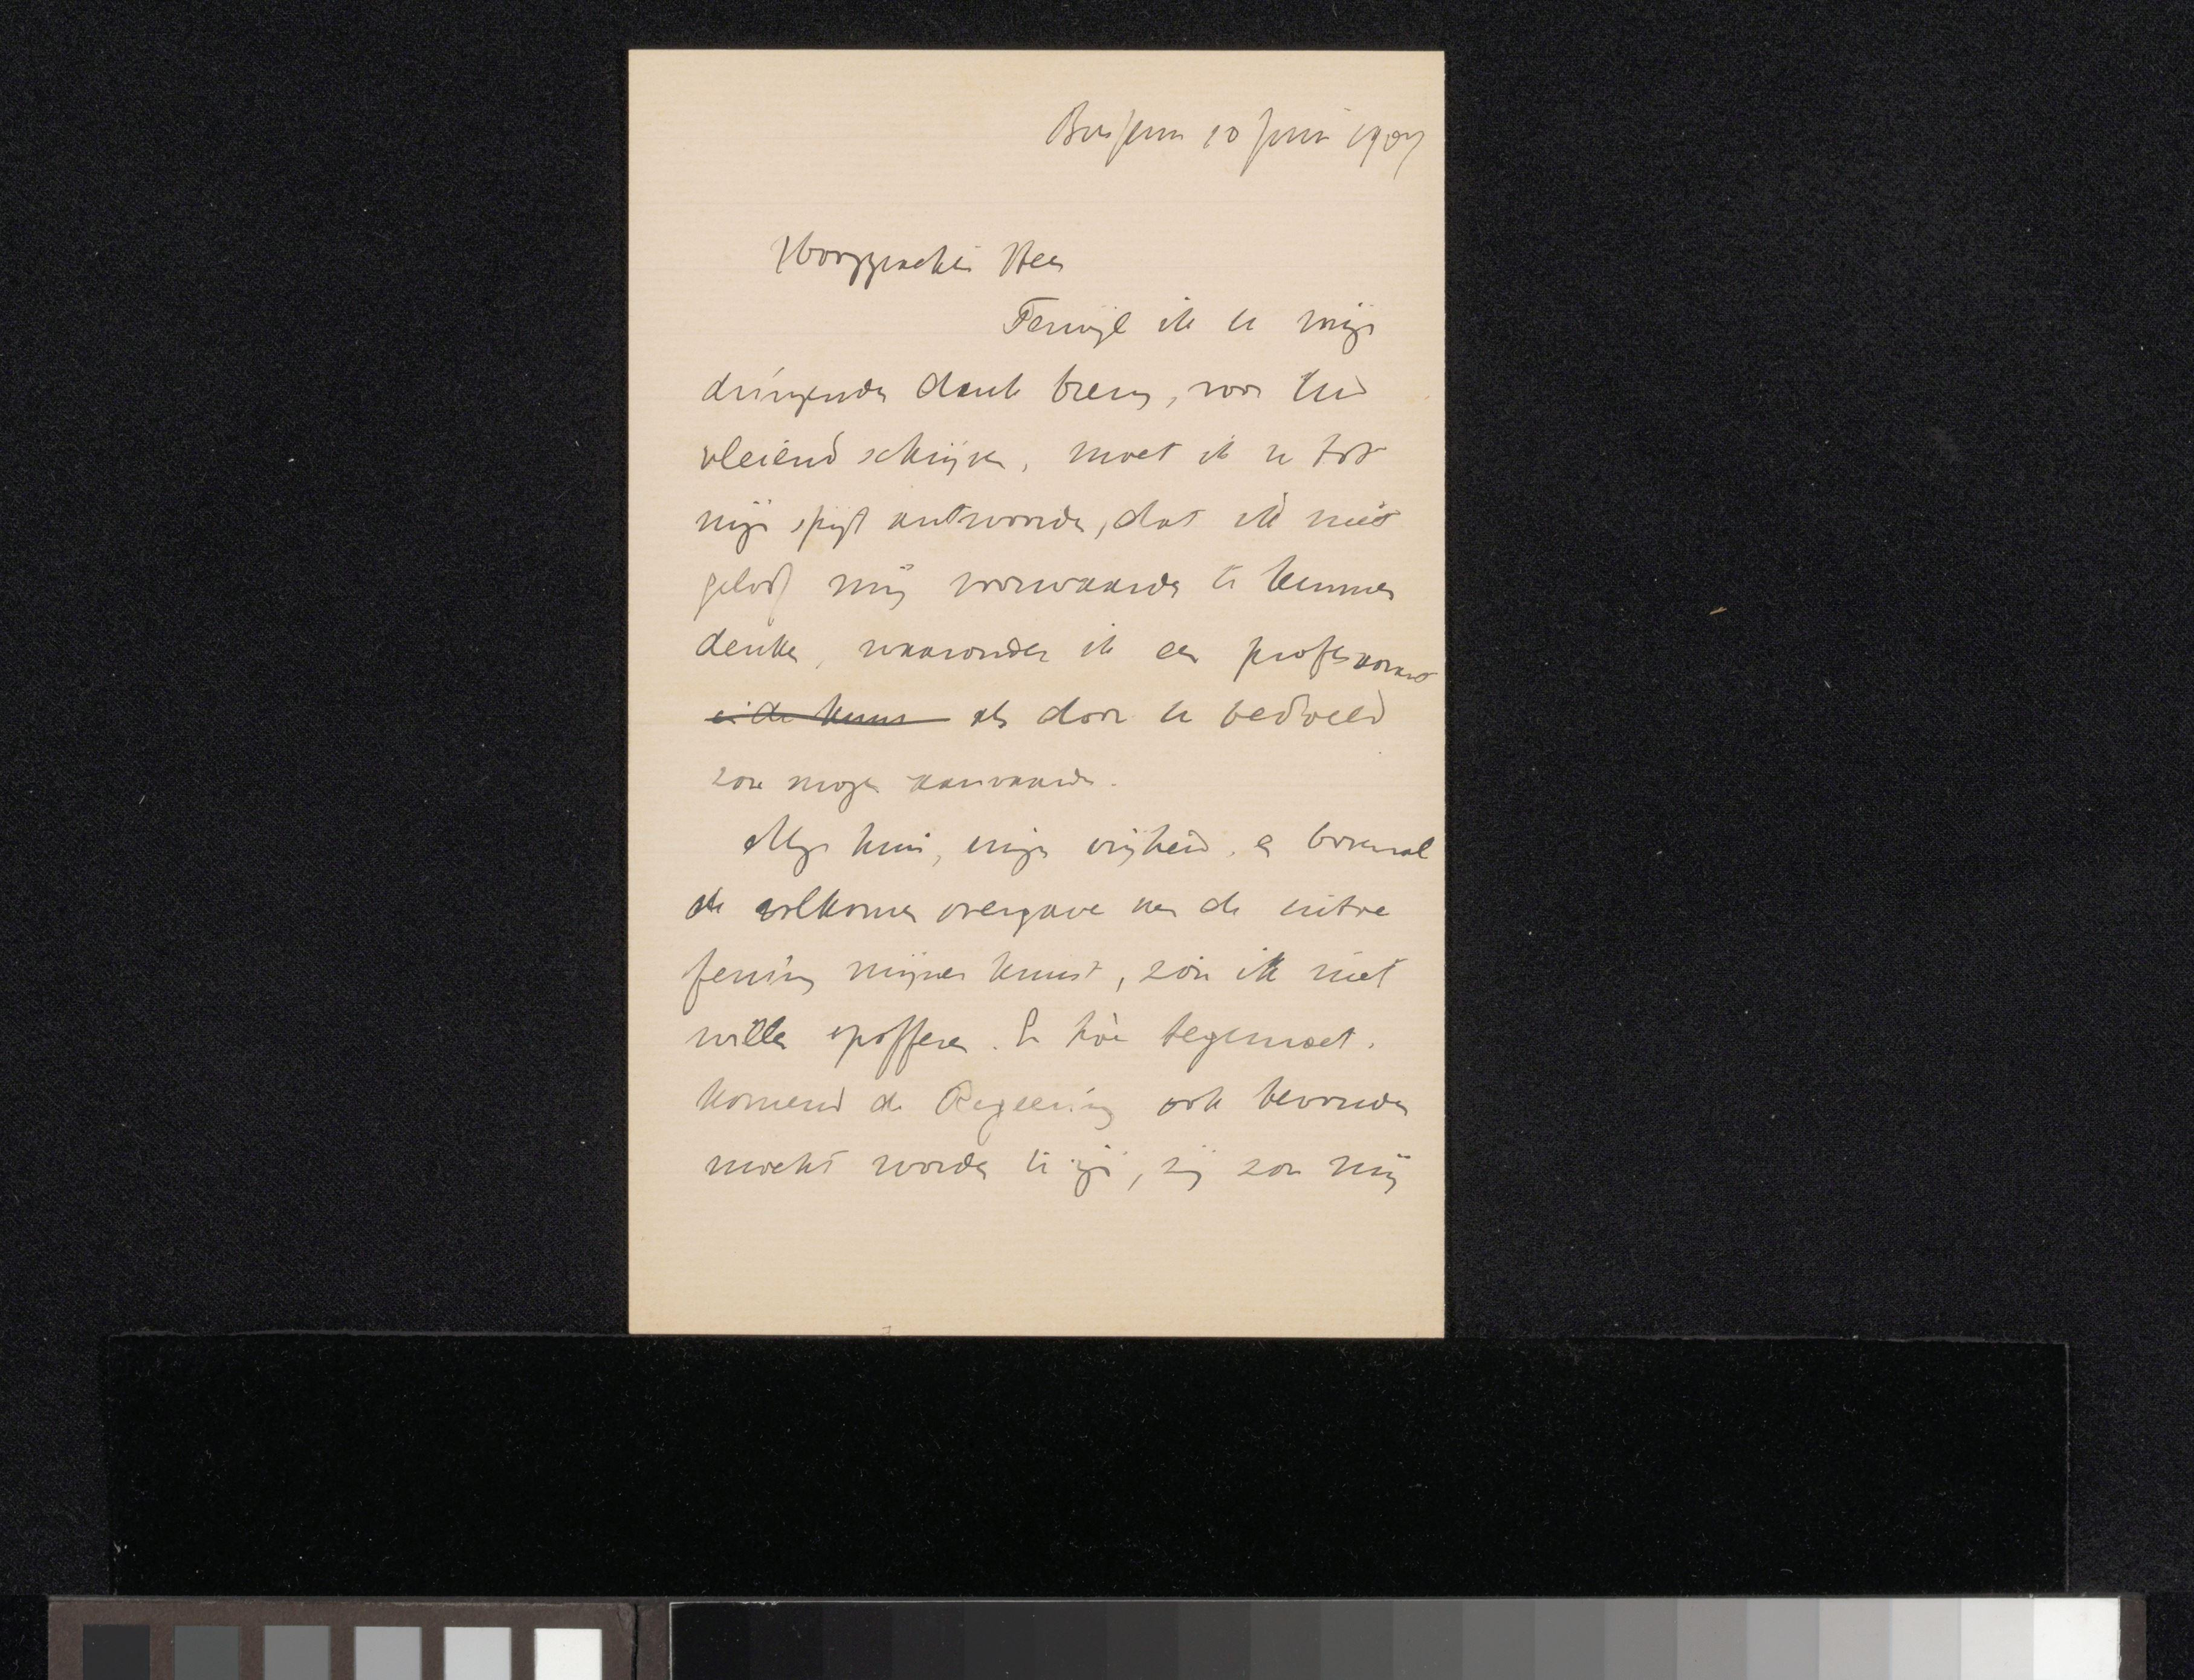 Bussum 10 Juni 1907
Hooggeachte Heer
Terwijl ik u mijn
dringenden dank breng, voor Uw
vleiend schrijven, moet ik u tot
mijn spijt antwoorden, dat ik niet
geloof mij voorwaarden te kunnen
denken, waaronder ik een professoraat
als door u bedoeld
zou mogen aanvaarden.
Mijn huis, mijn vrijheid, en bovenal
de volkomen overgave aan de uitoe
fening mijner kunst, zou ik niet
willen opofferen. En hoe tegemoet.
komend de Regeering ook bevonden
mocht worden te zijn, zij zou mij